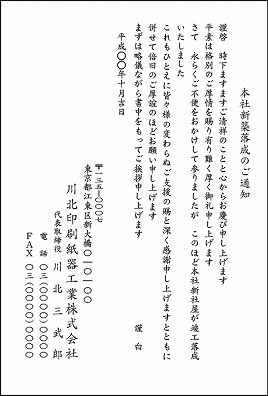 本社新築落成のご通知
謹啓 時下ますますご清祥のことと心からお慶び申し上げます
平素は格別のご厚情を賜り有り難く厚く御礼申し上げます
さて 永らくご不便をおかけして参りましたが このほど本社新社屋が竣工落成
いたしました
これもひとえに皆々様の変わらぬご支援の賜と深く感謝申し上げますとともに
併せて倍旧のご厚誼のほどお願い申し上げます
まずは略儀ながら書中をもってご挨拶申し上げます
謹白
平成〇〇年十月吉日
〒一三五-〇〇〇七
東京都江東区新大橋〇-〇-〇〇
川北印刷紙器工業株式会社
代表取締役 川北三武郎
電話 〇三(〇〇〇〇)〇〇〇〇
FAX 〇三(〇〇〇〇)〇〇〇〇